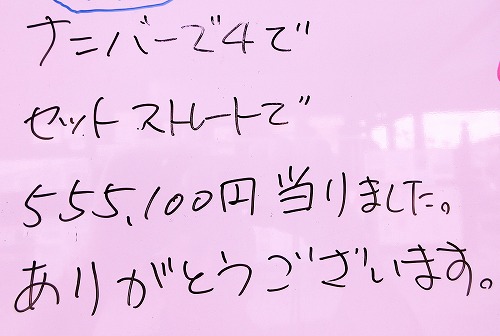 ナンバーズ4で
セットストレートで
555,100円当りました。
ありがとうございます。